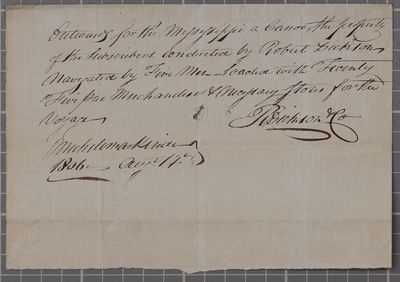 Outwards for the Missysippi a Canoe, the property
of the Subscribers conducted by Robert Dickson
Navigated by Five Men Loaded with Twenty
Five ps Merchandise & Necessary Stores for the
Voyage
Robt Dickson & Co
Michilimackinac
Augt 14